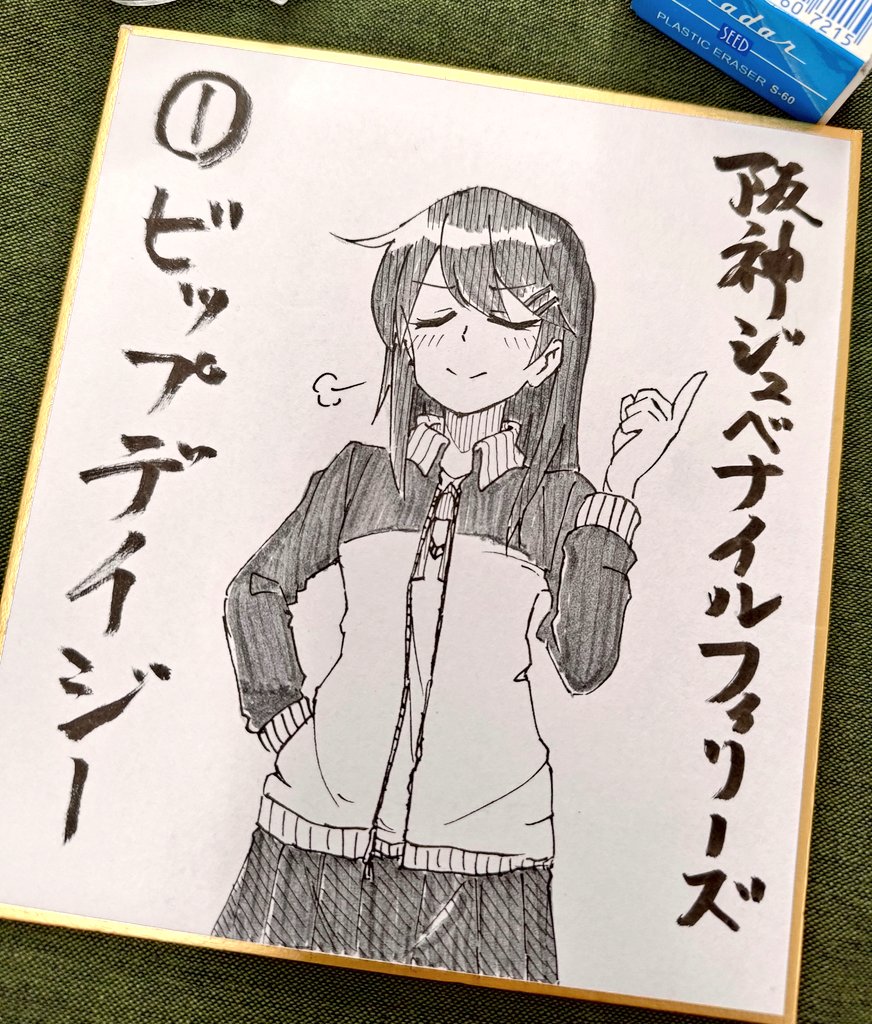 阪神ジュベナイルフィリーズ
①ビップデイジー
adar
SEED
PLASTIC ERASER S-60
607215